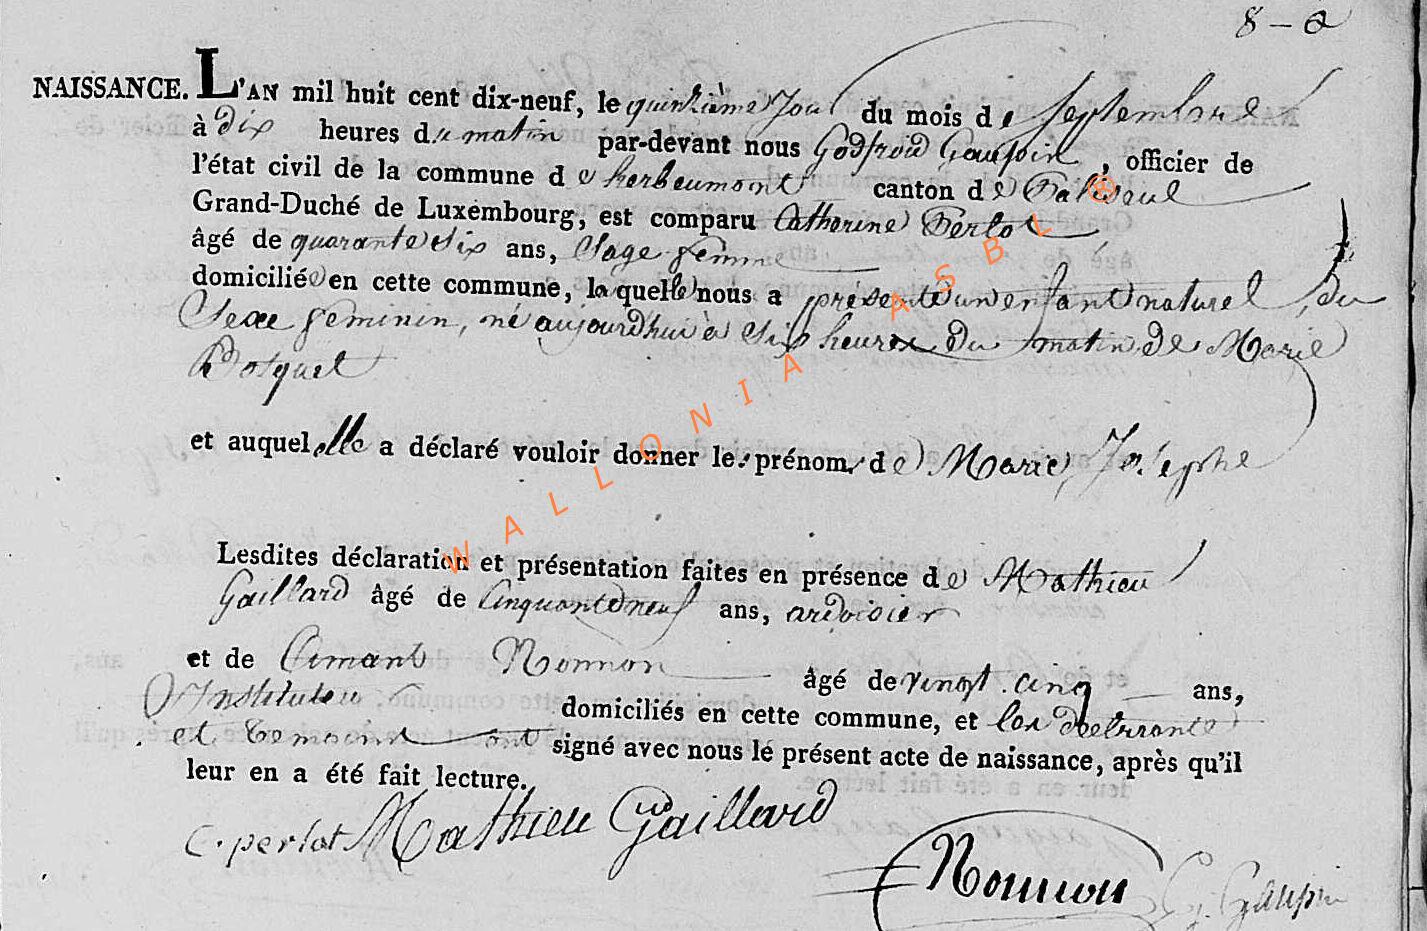 8 – a
NAISSANCE. L'AN mil huit cent dix-neuf, le quinzième Jour du mois de Septembre
à Dix heures du matin par-devant nous Godfroid Goupin, officier de
l'état civil de la commune de herbeumont canton de Paliseul
Grand-Duché de Luxembourg, est comparu Catherine Perlot
âgé de quarante six ans, Sage femme
domiciliée en cette commune, laquelle nous a présenté un enfant naturel, du
Sexe feminin, né aujourd'hui à Six heures du matin, de Marie
Bosquet
et auquel elle a déclaré vouloir donner les prénom, de Marie, Josephe
Lesdites déclaration et présentation faites en présence de Mathieu
Gaillard âgé de Cinquante neuf ans, ardoisier
et de Amant Nonnon âgé de vingt cinq ans,
Instituteur domiciliés en cette commune, et les declarante
et temoins ont signé avec nous le présent acte de naissance, après qu'il
leur en a été fait lecture.
C. perlot Mathieu Gaillard
Nonnon G. Goupin
WALLONIA ASBL ®